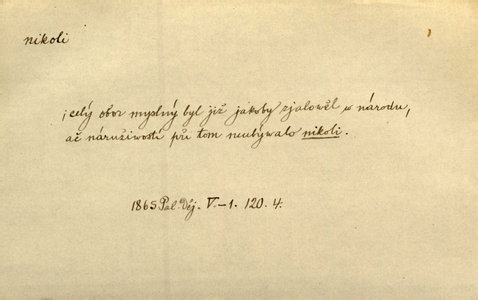 nikoli
; celý obor myslný byl již jakoby zjalowěl w národu,
ač náružiwosti při tom neubýwalo nikoli.
1865 Pal. Děj. V.-1. 120. 4.